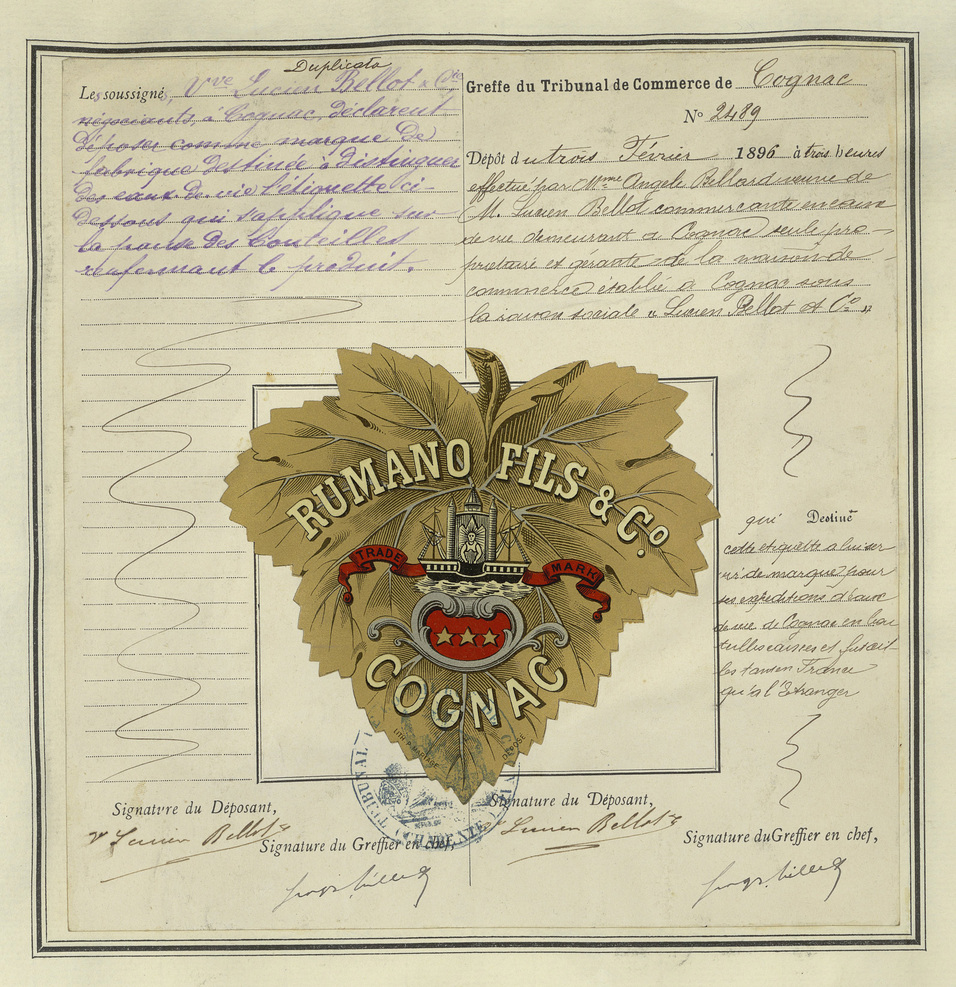 Duplicata
Les soussignés, Vve Lucien Bellot & Cie
négociants, à Cognac, déclarent
déposer comme marque de
fabrique destinée à distinguer
des eaux de vie l'étiquette ci-
dessous qui s'applique sur
la panse des bouteilles
renfermant le produit.
Greffe du Tribunal de Commerce de Cognac
No 2489
Dépôt du trois Février 1896 à trois heures
effectué par Mme Angele Billard veuve de
M. Lucien Bellot commerçante en eaux
de vie demeurant à Cognac seule pro-
prietaire et gérante de la maison de
commerce établie à Cognac sous
la raison sociale "Lucien Bellot et Co"
RUMANO FILS & Co.
TRADE MARK
COGNAC
LITH.
DÉPOSÉ
qui Destine
cette etiquette a lui ser
vir de marque pour
ses expéditions d'eaux
de vie de Cognac en bou
teilles caisses et futail-
les tant en France
qu'a l'Etranger
TRIBUNAL
CHARENTE
Signature du Déposant,
Vve Lucien Bellot &
Signature du Greffier en chef,
Signature du Déposant,
Vve Lucien Bellot &
Signature du Greffier en chef,